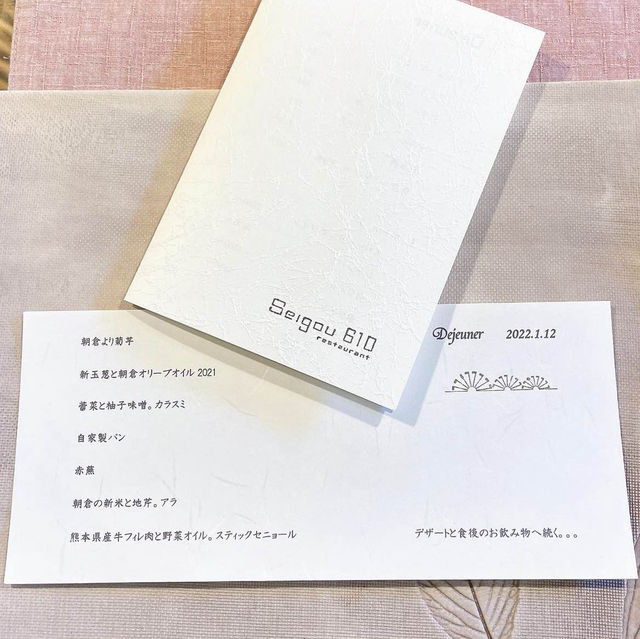 Seigou 610
restaurant
Dejeuner 2022.1.12
朝倉より菊芋
新玉葱と朝倉オリーブオイル 2021
蕾菜と柚子味噌。カラスミ
自家製パン
赤蕪
朝倉の新米と地芹。アラ
熊本県産牛フィレ肉と野菜オイル。スティックセニョール
デザートと食後のお飲み物へ続く。。。